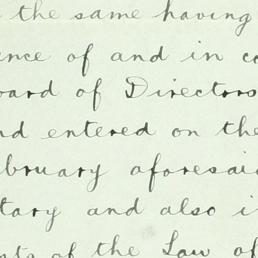 the same having
ence of and in co
oard of Directors
nd entered on the
bruary aforesaid
tary and also i
sts of the Law of